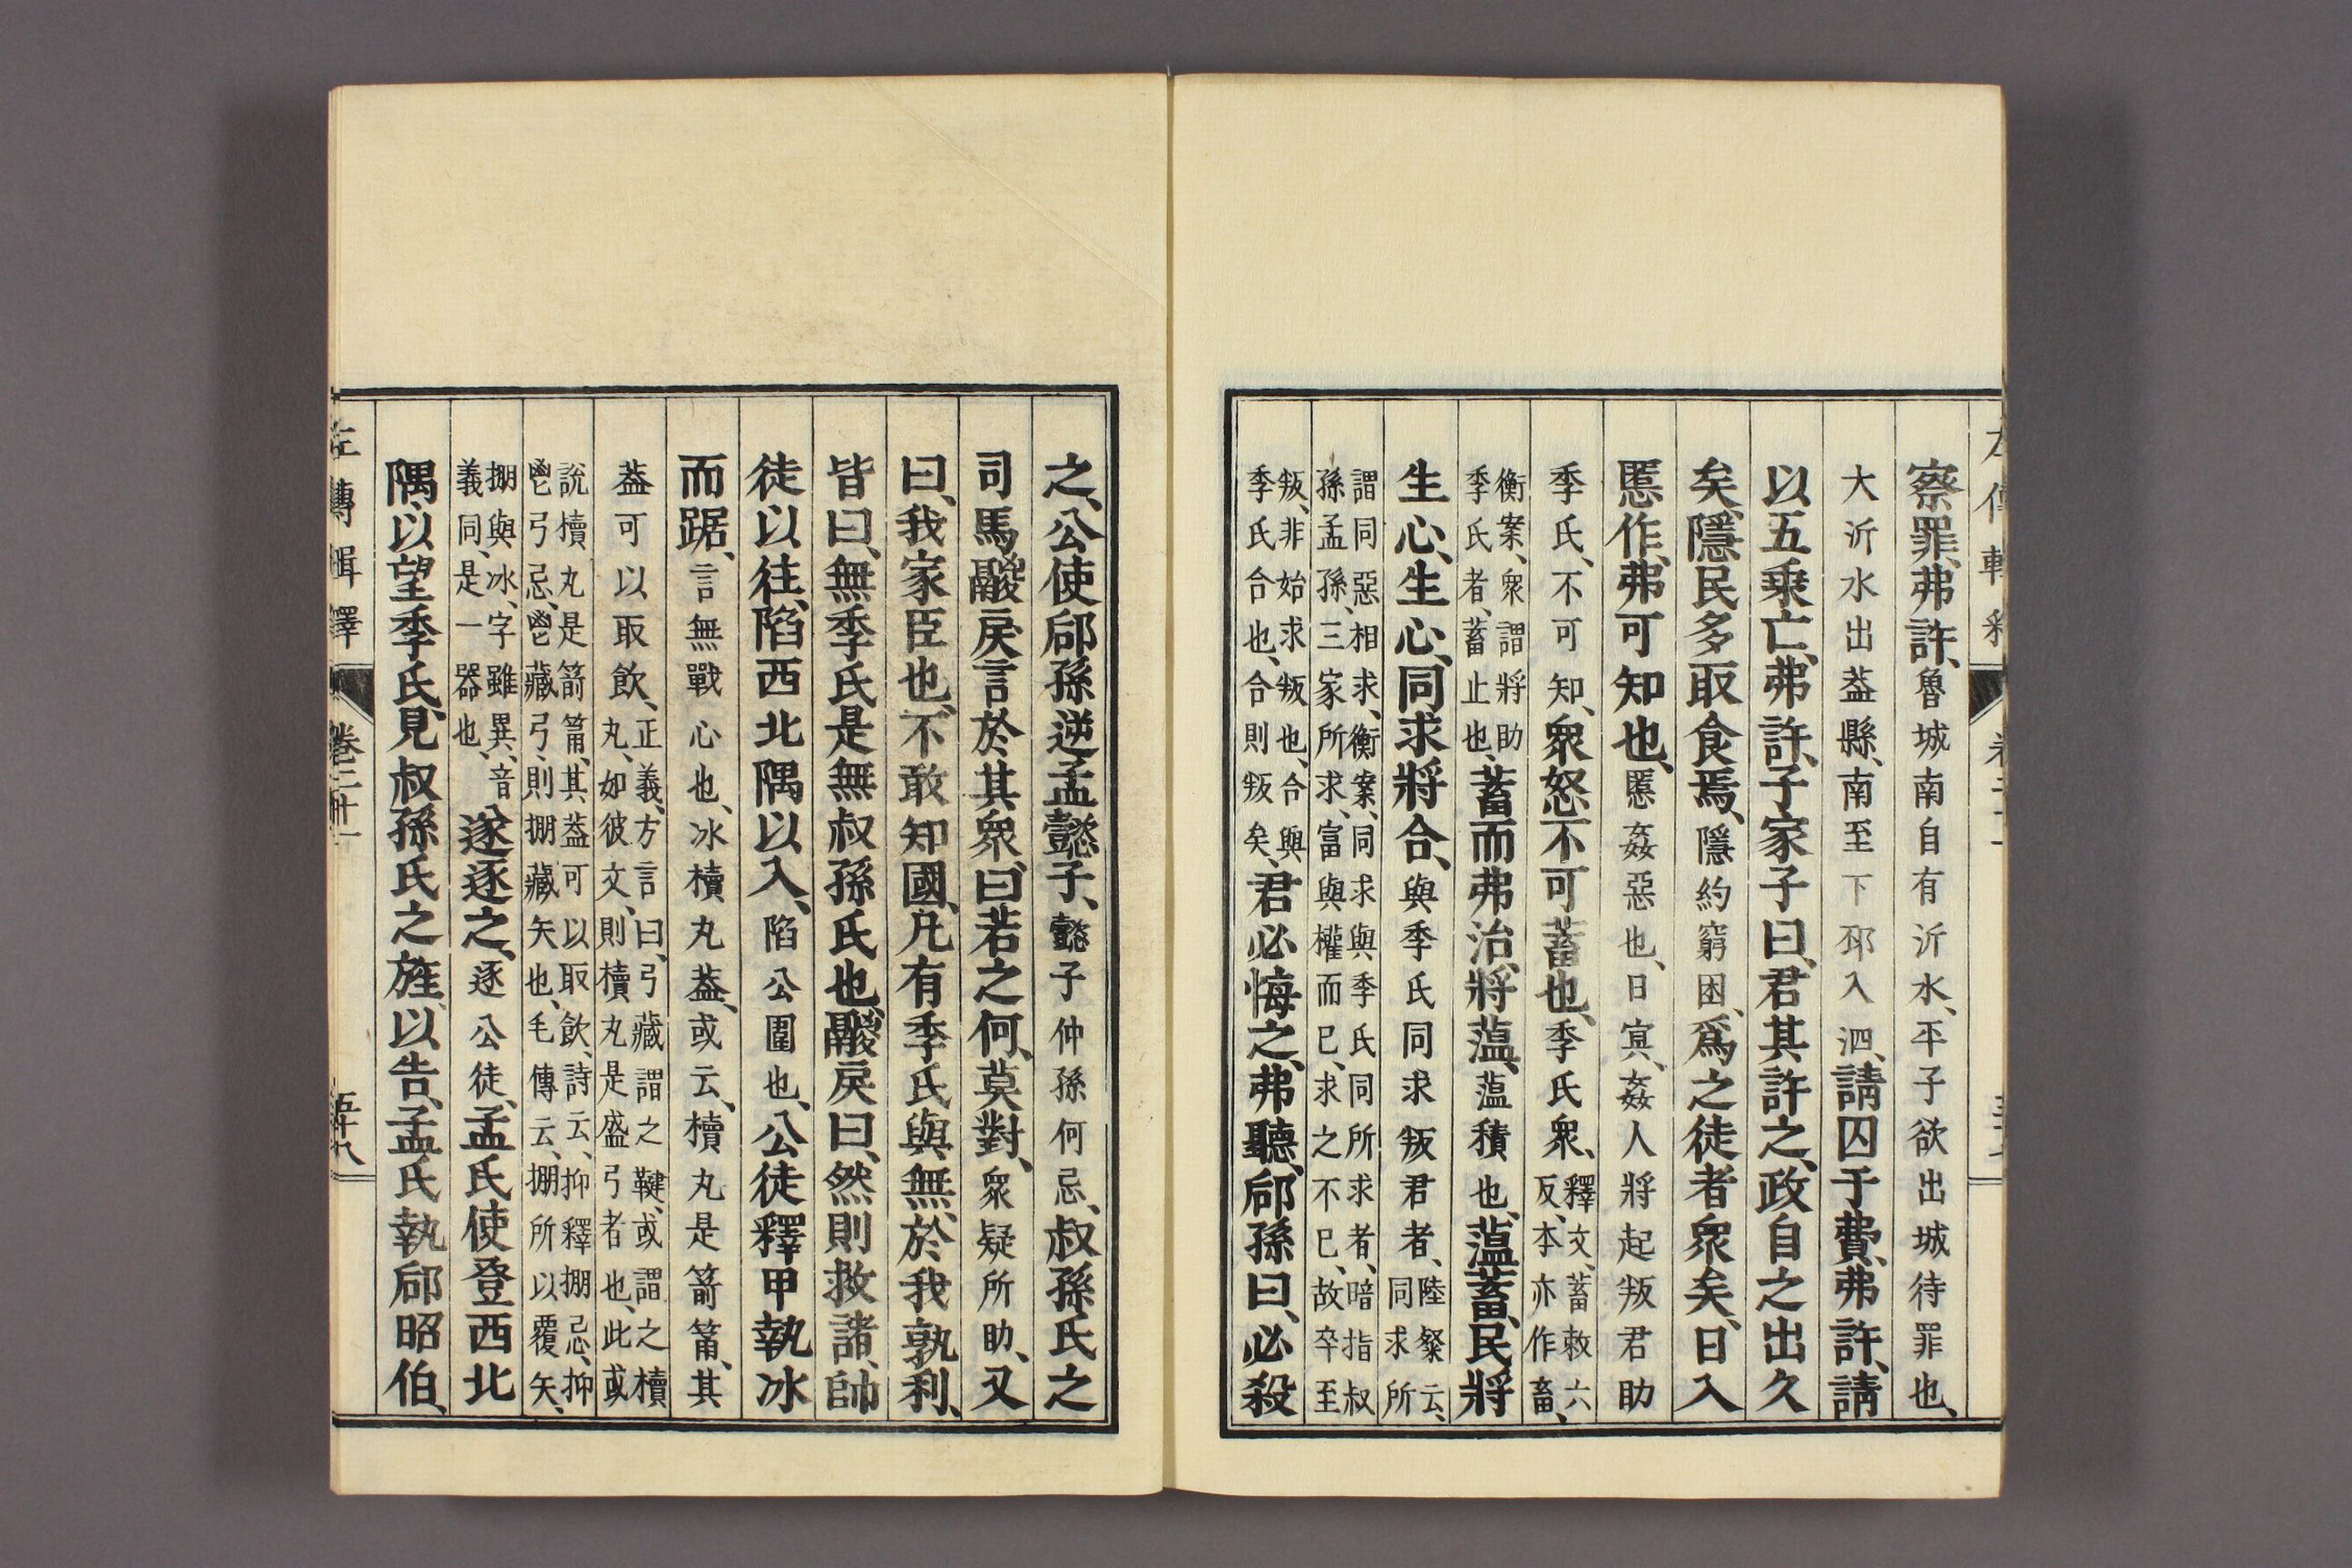 察罪、弗許、魯城南自有沂水、平子欲出城待罪也、
大沂水出葢縣、南至下邳入泗、請囚于費、弗許、請
以五乘亡、弗許、子家子曰、君其許之、政自之出久
矣、隱民多取食焉、隱約窮困、爲之徒者衆矣、日入
慝作、弗可知也、慝姦惡也、日冥、姦人將起叛君助
季氏、不可知、衆怒不可蓄也、季氏衆、釋文、蓄敕六
反、本亦作畜、
衡案、衆謂將助
季氏者、蓄止也、蓄而弗治、將薀、薀積也、薀蓄、民將
生心、生心、同求將合、與季氏同求叛君者、陸粲云、
同求所
謂同惡相求、衡案、同求與季氏同所求者、暗指叔
孫孟孫、三家所求、富與權而已、求之不已、故卒至
叛、非始求叛也、合與
季氏合也、合則叛矣、君必悔之、弗聽、郈孫曰、必殺
之、公使郈孫逆孟懿子、懿子仲孫何忌、叔孫氏之
司馬鬷戾言於其衆、曰若之何、莫對、衆疑所助、又
曰、我家臣也、不敢知國、凡有季氏與無、於我孰利、
皆曰、無季氏是無叔孫氏也、鬷戾曰、然則救諸、帥
徒以往、陷西北隅以入、陷公圍也、公徒釋甲執冰
而踞、言無戰心也、冰櫝丸葢、或云、櫝丸是箭筩、其
葢可以取飲、正義、方言曰、弓藏謂之鞬、或謂之櫝
丸、如彼文、則櫝丸是盛弓者也、此或
說櫝丸是箭筩、其葢可以取飲、詩云、抑釋掤忌、抑
鬯弓忌、鬯藏弓、則掤藏矢也、毛傳云、掤所以覆矢、
掤與冰、字雖異、音
義同、是一器也、遂逐之、逐公徒、孟氏使登西北
隅、以望季氏、見叔孫氏之旌、以告、孟氏執郈昭伯、
左傳輯釋
卷二十一
五十八